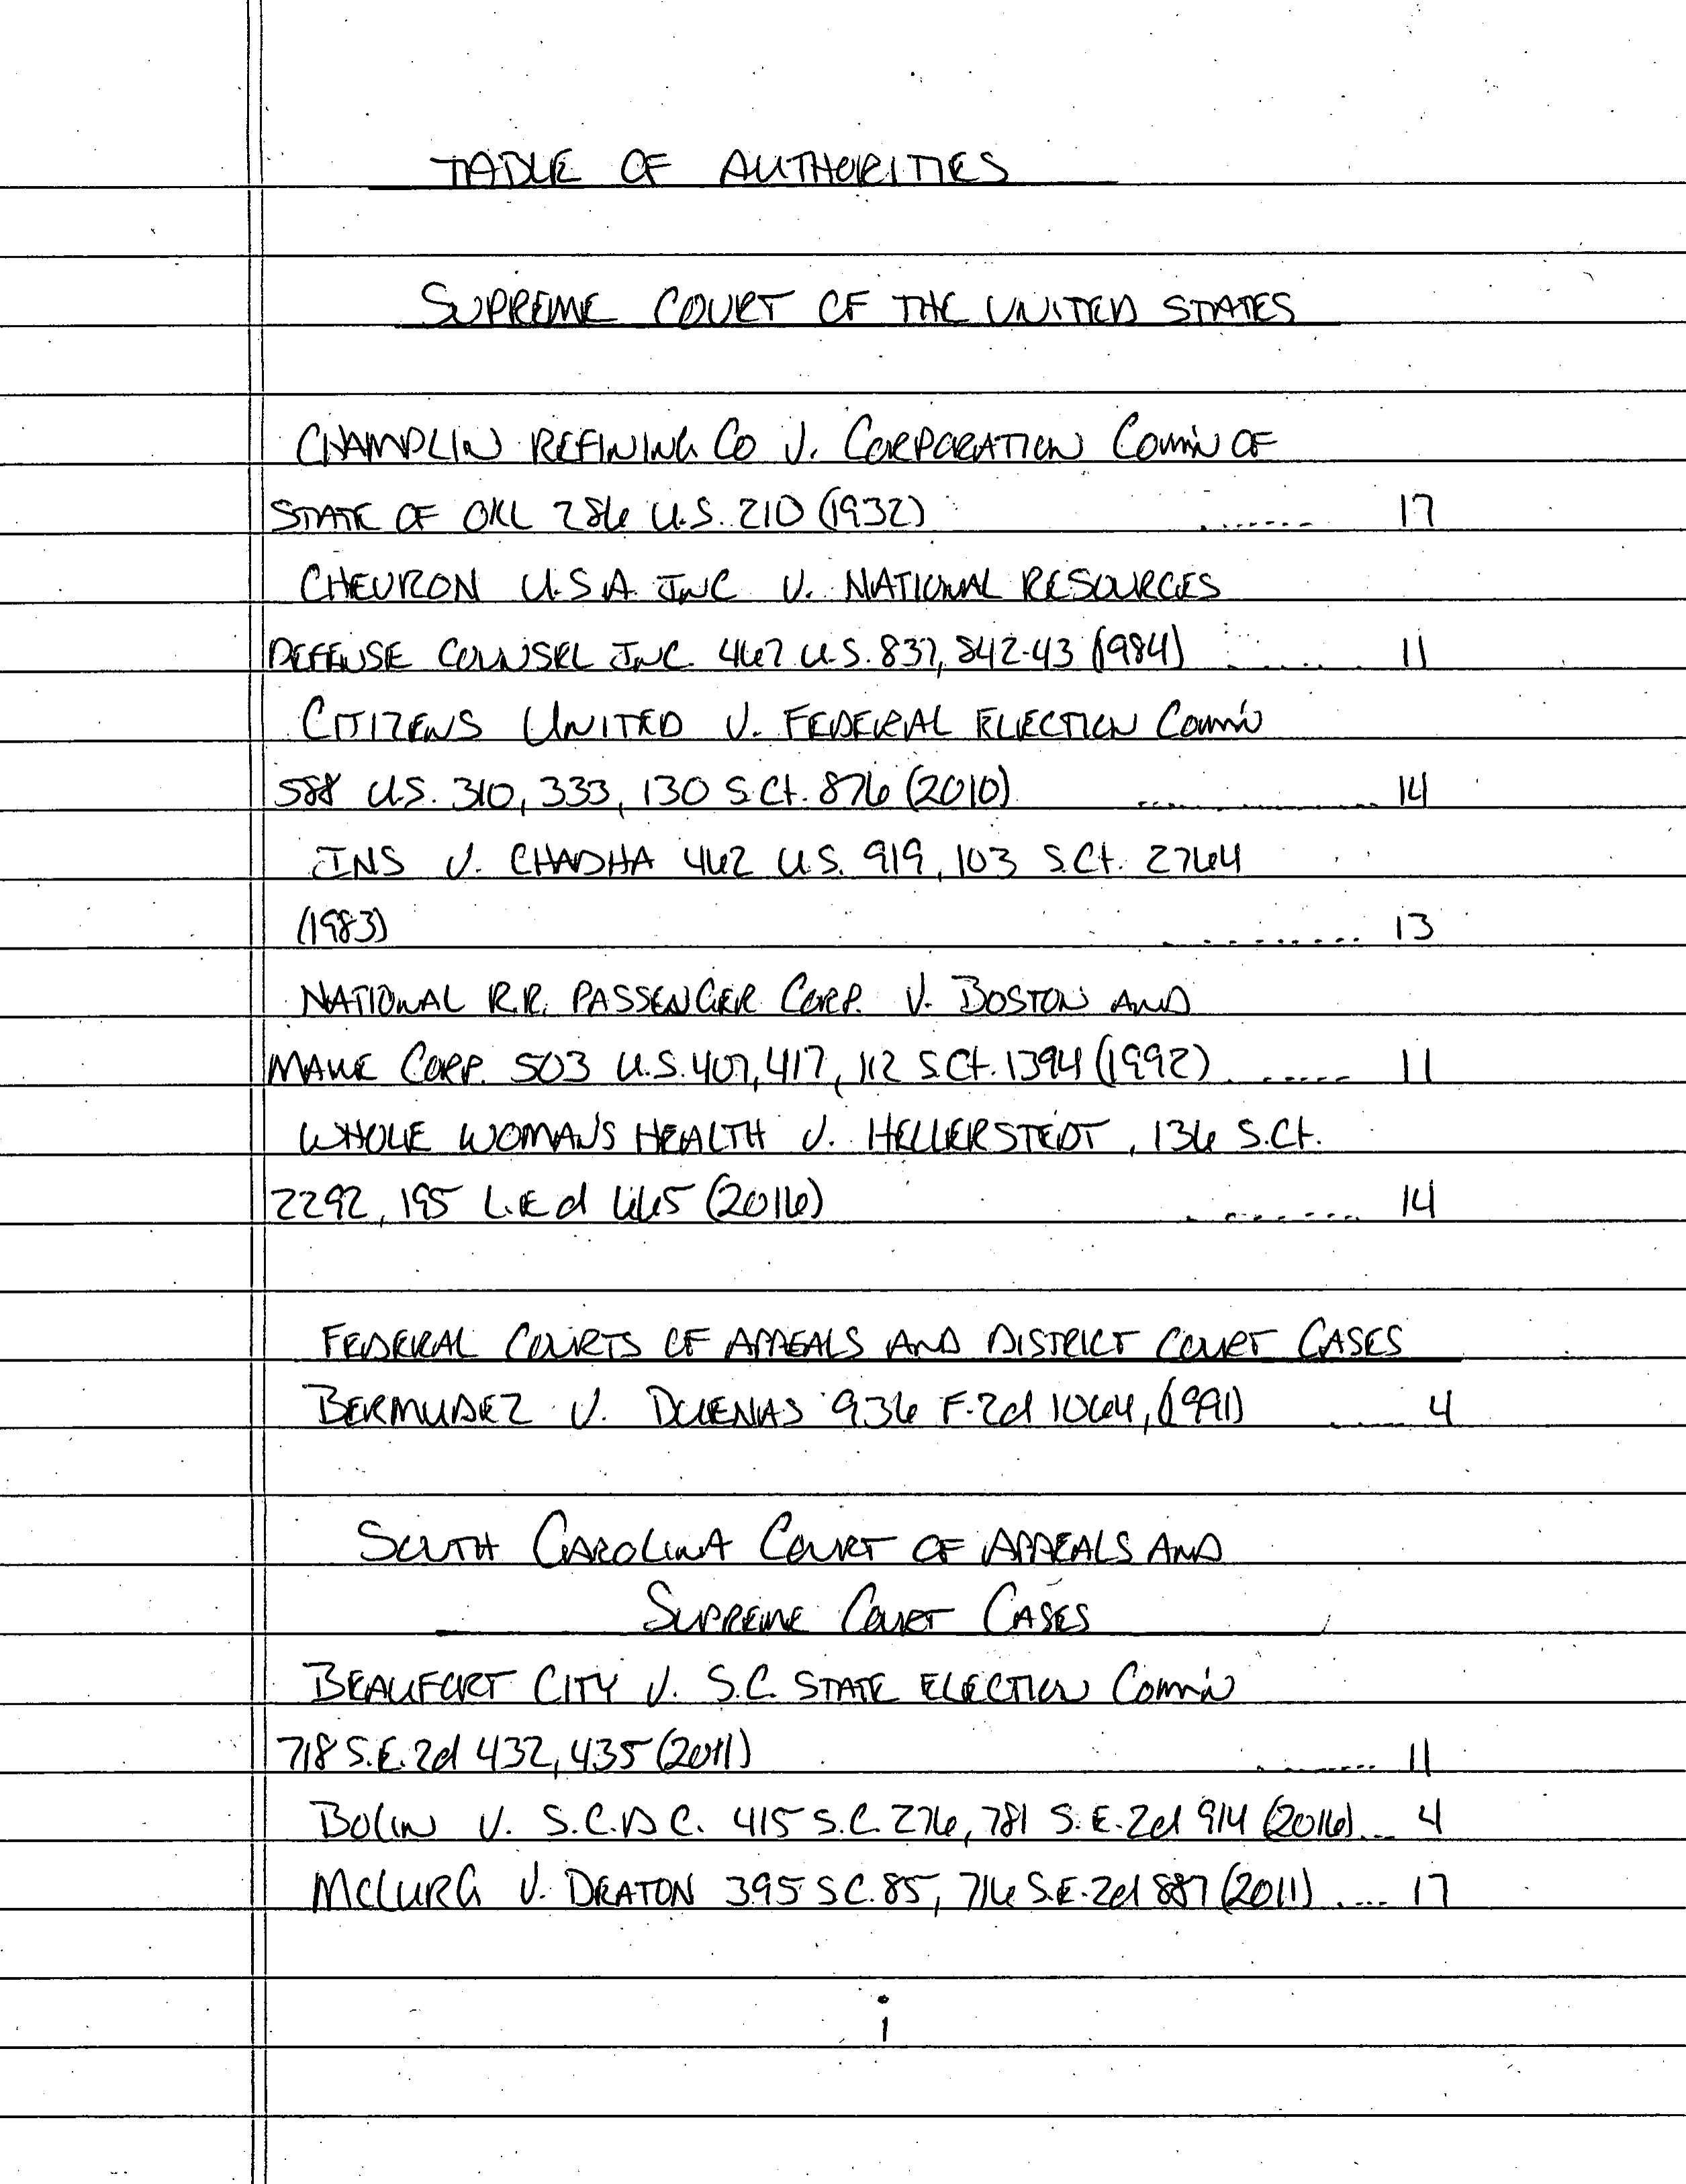 TABLE OF AUTHORITIES
SUPREME COURT OF THE UNITED STATES
CHAMPLIN REFINING Co V. CORPORATION Comm'n OF
STATE OF OKL 286 U.S. 210 (1932) ....... 17
CHEVRON U.S.A. INC V. NATIONAL RESOURCES
DEFENSE COUNSEL INC. 467 U.S. 837, 842-43 (1984) ....... 11
CITIZENS UNITED V. FEDERAL ELECTION Comm'n
588 U.S. 310, 333, 130 S.Ct. 876 (2010) ....... 14
INS V. CHADHA 462 U.S. 919, 103 S.Ct. 2764
(1983) ......... 13
NATIONAL R.R. PASSENGER CORP. V. BOSTON AND
MAINE CORP. 503 U.S. 407, 417, 112 S.Ct. 1394 (1992) ...... 11
WHOLE WOMAN'S HEALTH V. HELLERSTEDT, 136 S.Ct.
2292, 195 L.Ed 665 (2016) ........ 14
FEDERAL COURTS OF APPEALS AND DISTRICT COURT CASES
BERMUDEZ V. DUENAS 936 F.2d 1064, (1991) ..... 4
SOUTH CAROLINA COURT OF APPEALS AND
SUPREME COURT CASES
BEAUFORT CITY V. S.C. STATE ELECTION Comm'n
718 S.E.2d 432, 435 (2011) ........ 11
BOLIN V. S.C.D.C. 415 S.C. 276, 781 S.E.2d 914 (2016) ... 4
McLURG V. DEATON 395 S.C. 85, 716 S.E.2d 887 (2011) .... 17
i